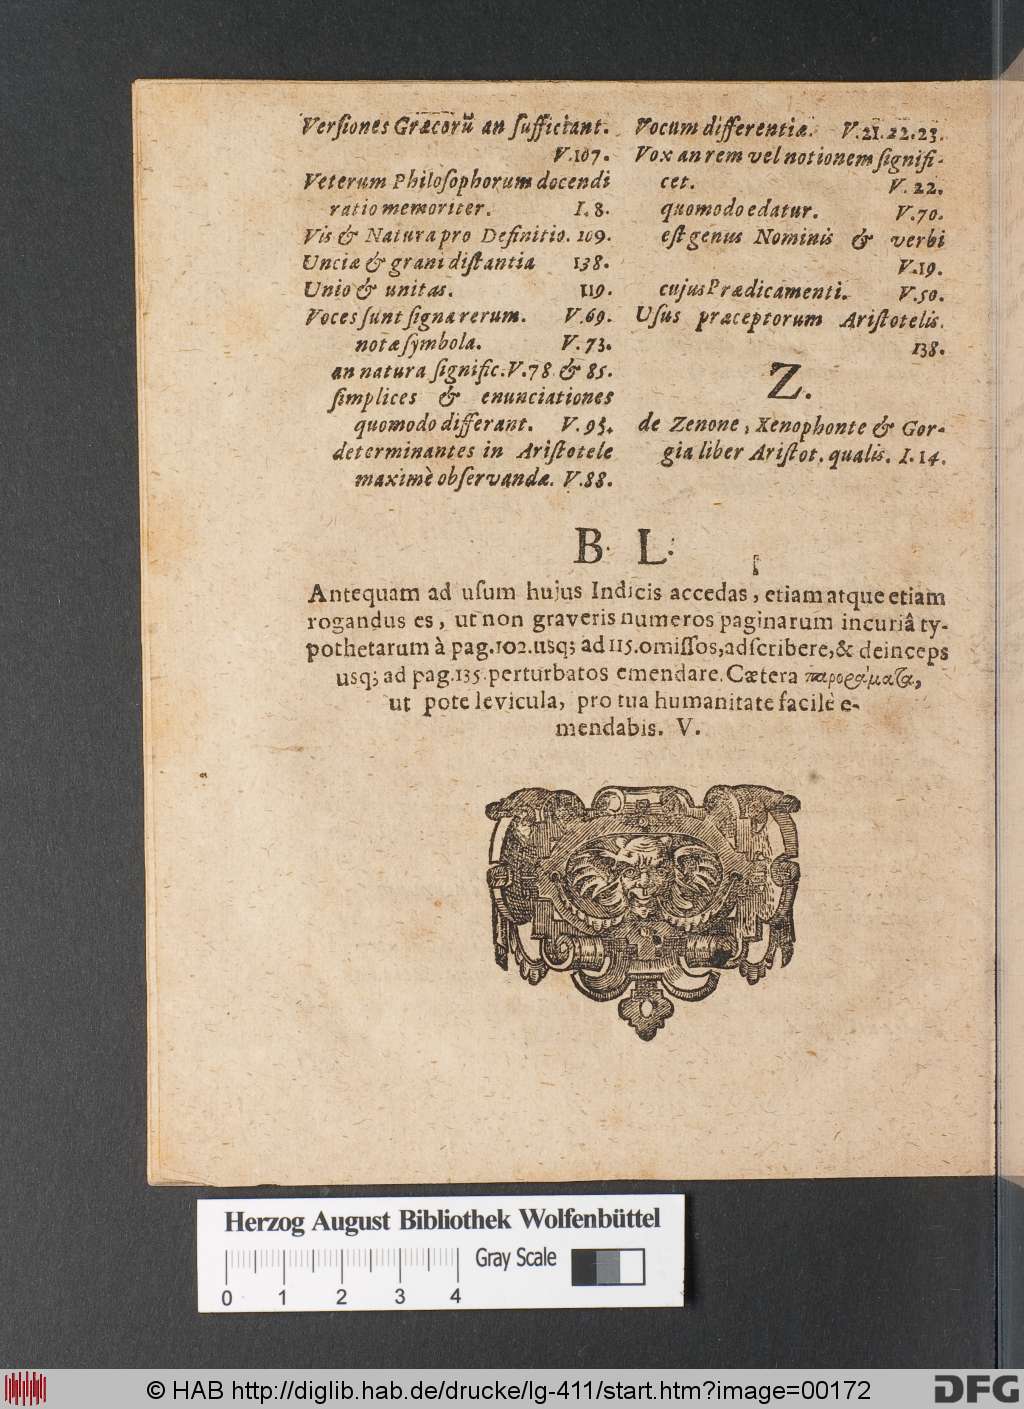 Verſiones Græcorũ an ſufficiant.
V.107.
Veterum Philoſophorum docendi
ratio memoriter. I.8.
Vis & Natura pro Definitio. 109.
Unciæ & grani diſtantia 138.
Unio & unitas. 119.
Voces ſunt ſigna rerum. V.69.
notæ ſymbola. V.73.
an natura ſignific. V.78 & 85.
ſimplices & enunciationes
quomodo differant. V.95.
determinantes in Ariſtotele
maximè obſervandæ. V.88.
Vocum differentiæ. V.21.22.23.
Vox an rem vel notionem ſignifi-
cet. V.22.
quomodo edatur. V.70.
eſt genus Nominis & verbi
V.19.
cujus Prædicamenti. V.50.
Uſus præceptorum Ariſtotelis.
138.
Z.
de Zenone, Xenophonte & Gor-
gia liber Ariſtot. qualis. I.14.
B. L.
Antequam ad uſum hujus Indicis accedas, etiam atque etiam
rogandus es, ut non graveris numeros paginarum incuriâ ty-
pothetarum à pag.102.usq; ad 115.omiſſos,adſcribere,& deinceps
usq; ad pag.135.perturbatos emendare. Cætera παροράματα,
ut pote levicula, pro tua humanitate facilè e-
mendabis. V.
Herzog August Bibliothek Wolfenbüttel
Gray Scale
0 1 2 3 4
© HAB http://diglib.hab.de/drucke/lg-411/start.htm?image=00172
DFG